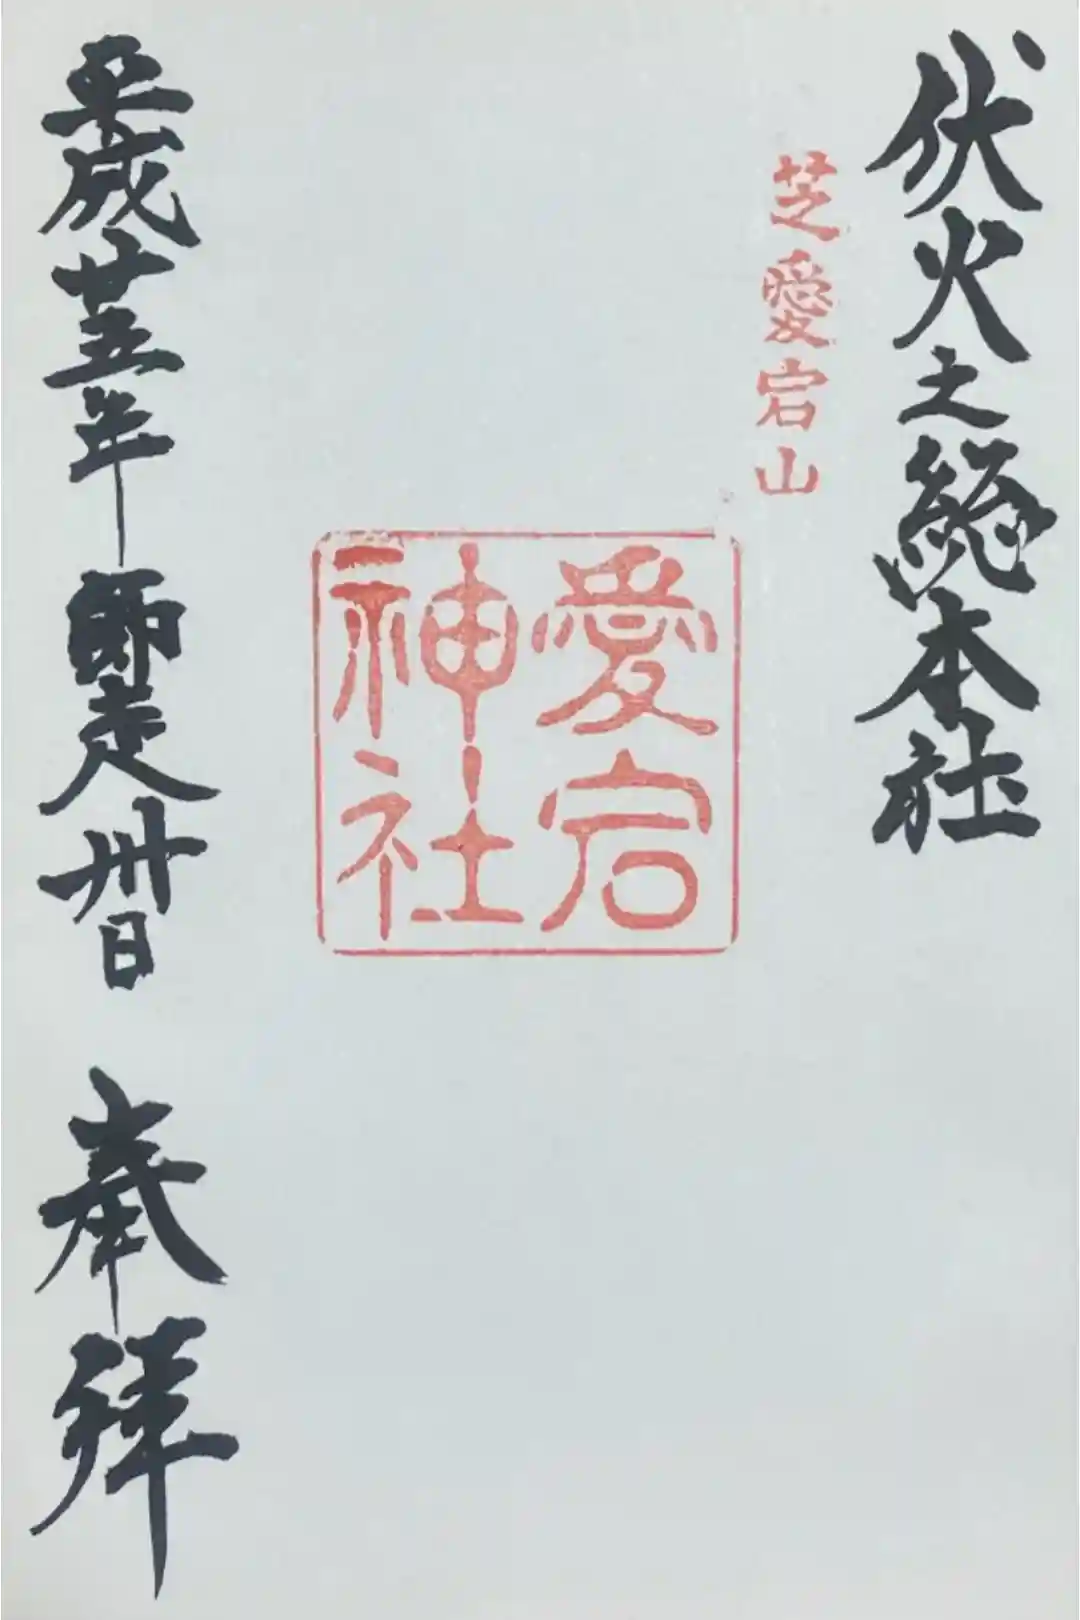 伏火之総本社
芝愛宕山
愛宕
神社
平成廿五年 師走丗日 奉拝